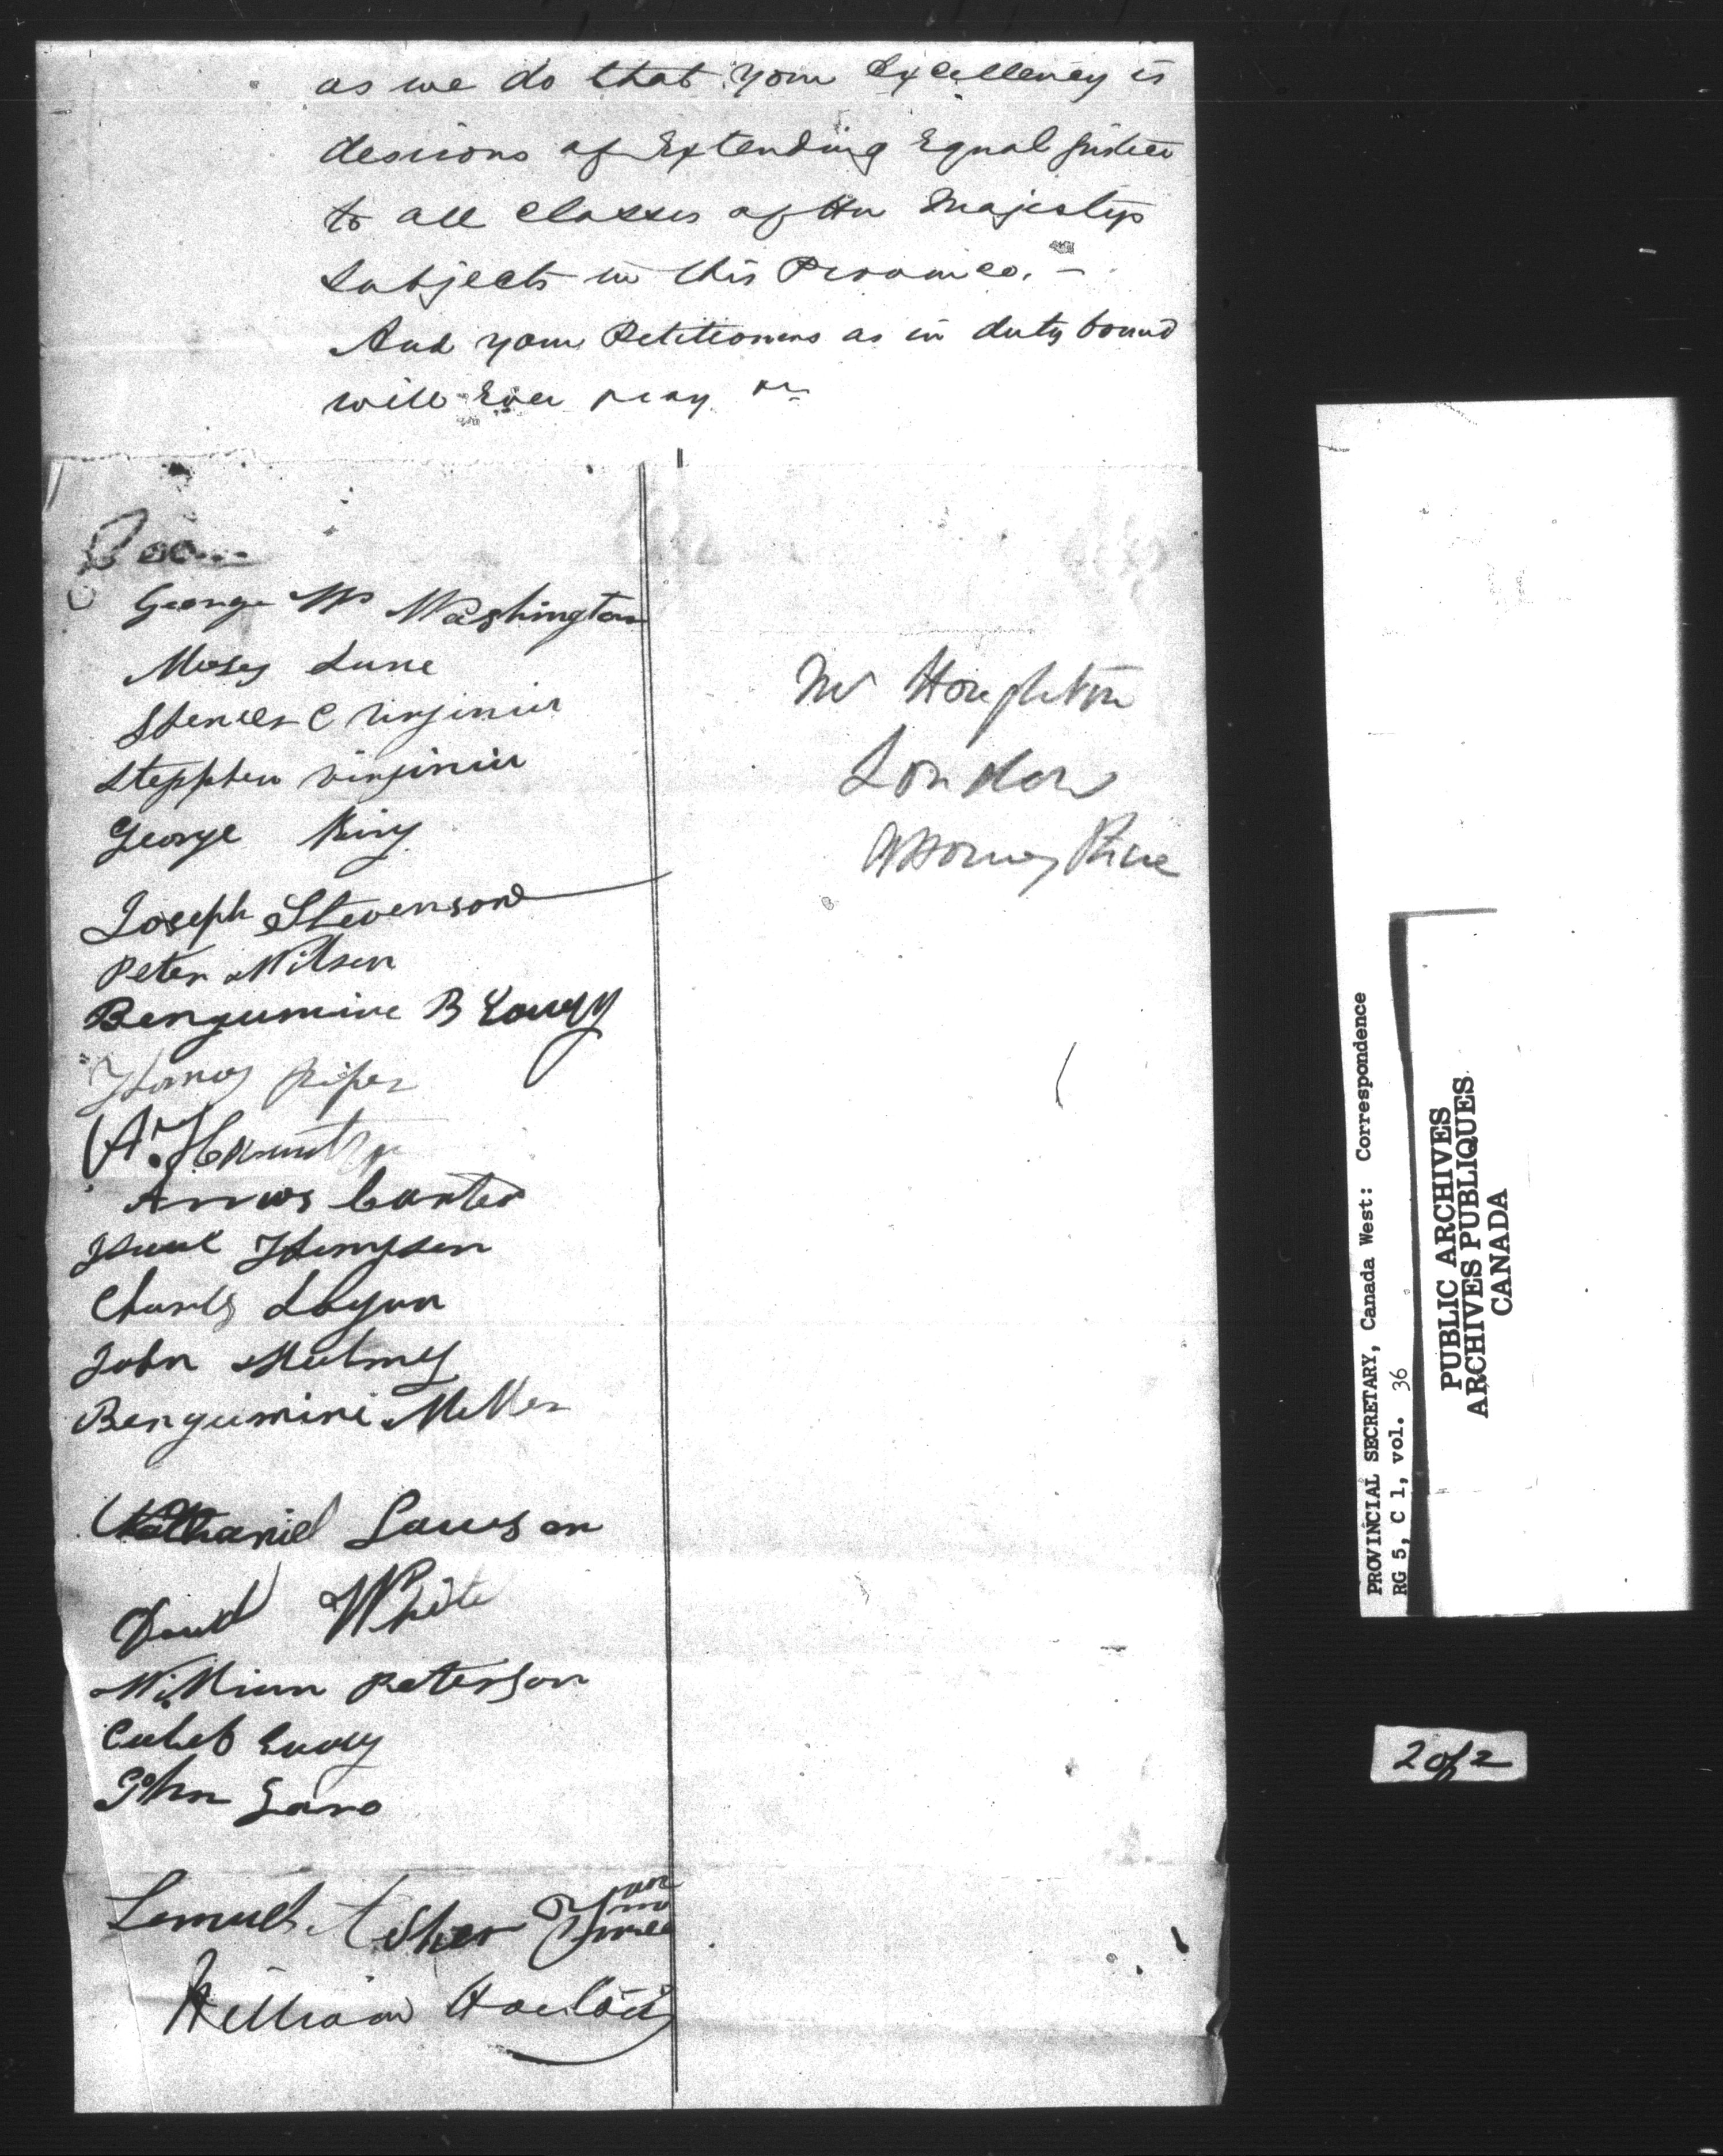 as we do that your Excellency is
desirous of Extending Equal justice
to all classes of Her Majestys
Subjects in this Province. –
And your Petitioners as in duty bound
will Ever pray
George W Washington
Moses Lune
Spencer C Virginia
Stepphen virginia
George King
Joseph Stevenson
Peter Wilson
Bengumine B
Thomas piper
A.
Amos Carter
Isaac Thompson
Charls Logun
John Holmes
Bengumine Miller
Nathaniel Lawson
David White
William peterson
Caleb
John
Lemuel
William
Mr Houghton
London
Attorney
PROVINCIAL SECRETARY, Canada West: Correspondence
RG 5, C 1, vol. 36
PUBLIC ARCHIVES
ARCHIVES PUBLIQUES
CANADA
2 of 2